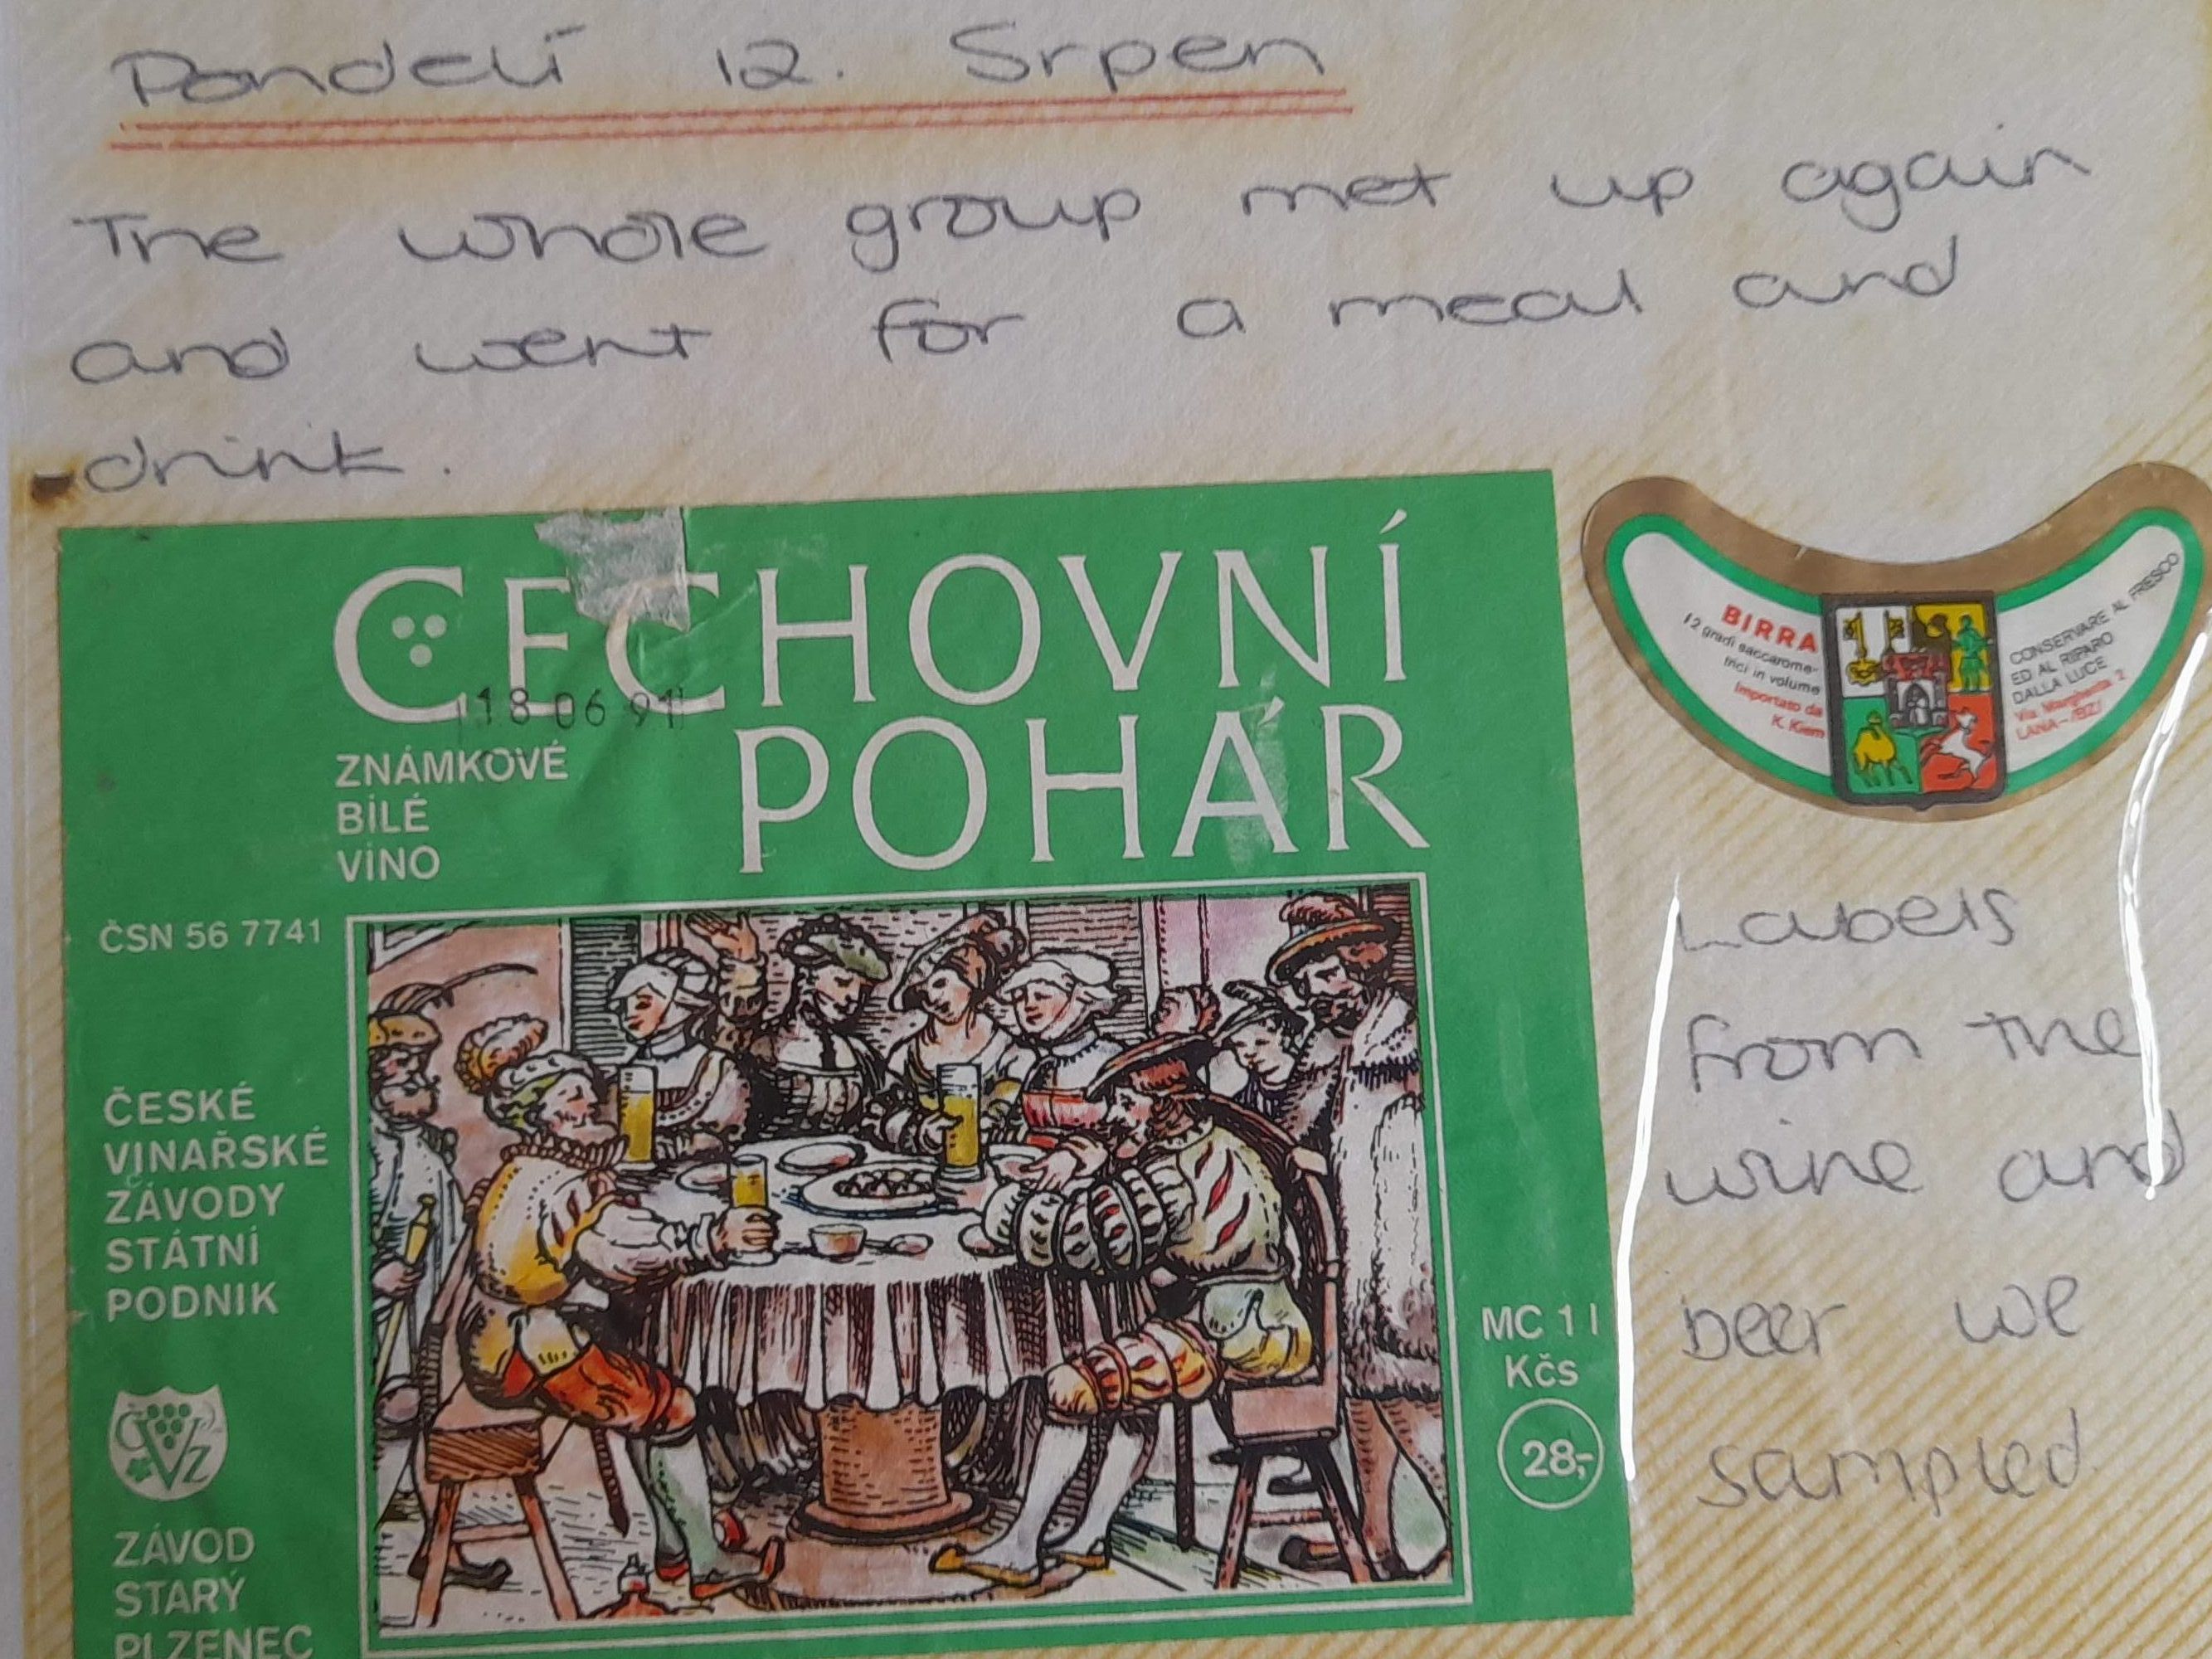 Pondelí 12. Srpen
The whole group met up again
and went for a meal and
drink.
CECHOVNÍ
POHÁR
18 06 91
ZNÁMKOVÉ
BÍLÉ
VÍNO
ČSN 56 7741
ČESKÉ
VINAŘSKÉ
ZÁVODY
STÁTNÍ
PODNIK
ČVZ
ZÁVOD
STARÝ
PLZENEC
MC 1 l
Kčs
28,-
BIRRA
12 gradi saccarome-
trici in volume
Importato da
K. Kiem
CONSERVARE AL FRESCO
ED AL RIPARO
DALLA LUCE
Via Margherita 2
LANA-/BZ/
Labels
from the
wine and
beer we
sampled